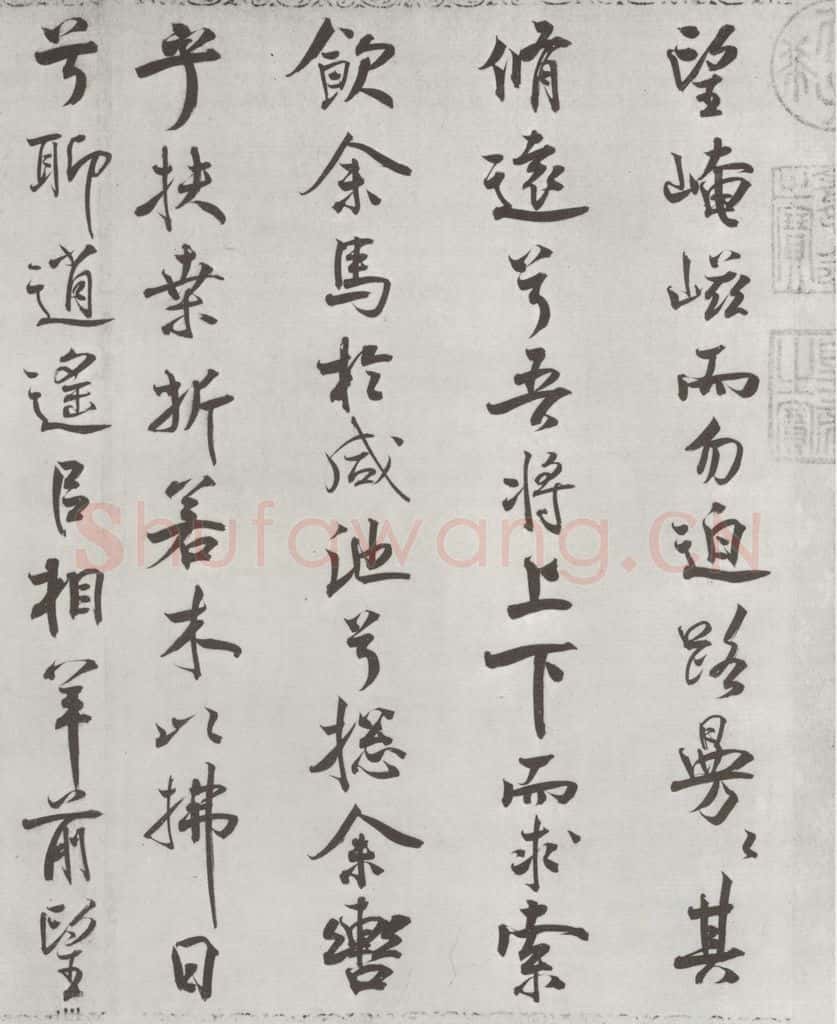 望崦嵫而勿迫路曼〻其
脩遠兮吾将上下而求索
飲余馬於咸池兮揔余轡
乎扶桒折若木以拂日
兮聊逍遥㠯相羊前望
Shufawang.CN